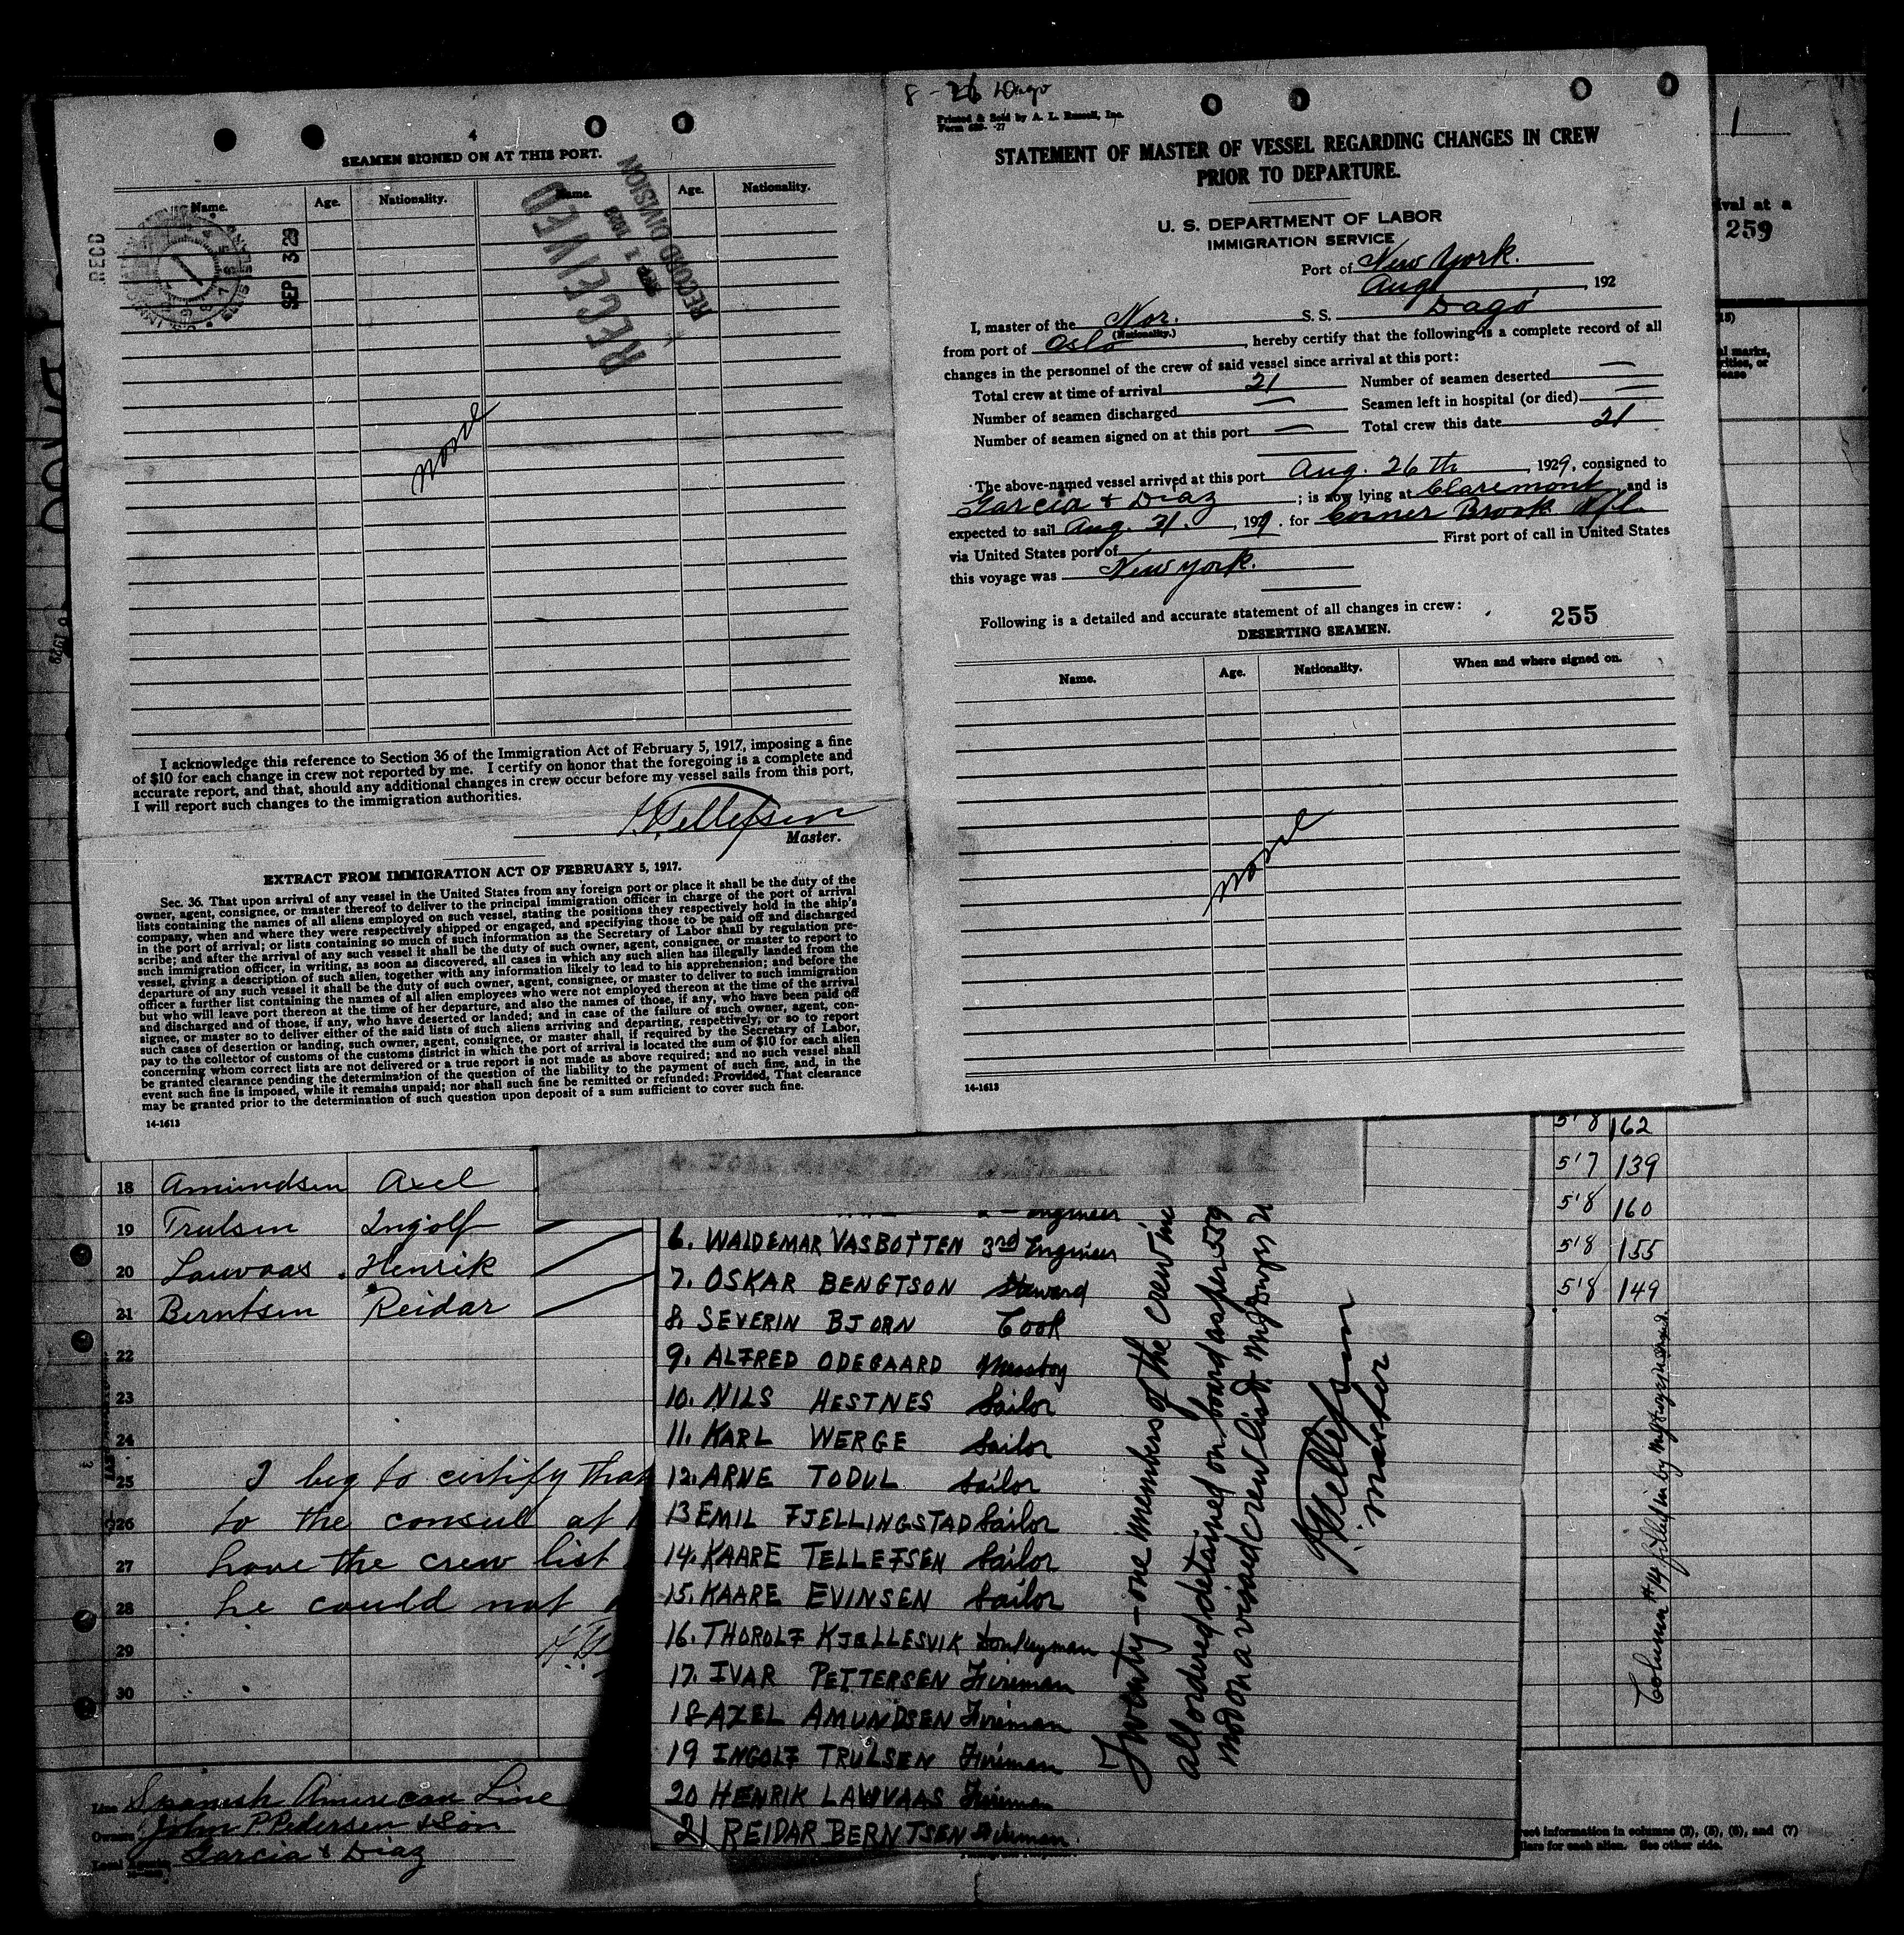 4
SEAMEN SIGNED ON AT THIS PORT.
Name. Age. Nationality. Name. Age. Nationality.
RECD
SEP 3 29
RECEIVED
RECORD DIVISION
none
I acknowledge this reference to Section 36 of the Immigration Act of February 5, 1917, imposing a fine
of $10 for each change in crew not reported by me. I certify on honor that the foregoing is a complete and
accurate report, and that, should any additional changes in crew occur before my vessel sails from this port,
I will report such changes to the immigration authorities.
Tellefsen
Master.
EXTRACT FROM IMMIGRATION ACT OF FEBRUARY 5, 1917.
Sec. 36. That upon arrival of any vessel in the United States from any foreign port or place it shall be the duty of the
owner, agent, consignee, or master thereof to deliver to the principal immigration officer in charge of the port of arrival
lists containing the names of all aliens employed on such vessel, stating the positions they respectively hold in the ship's
company, when and where they were respectively shipped or engaged, and specifying those to be paid off and discharged
in the port of arrival; or lists containing so much of such information as the Secretary of Labor shall by regulation pre-
scribe; and after the arrival of any such vessel it shall be the duty of such owner, agent, consignee, or master to report to
such immigration officer, in writing, as soon as discovered, all cases in which any such alien has illegally landed from the
vessel, giving a description of such alien, together with any information likely to lead to his apprehension; and before the
departure of any such vessel it shall be the duty of such owner, agent, consignee, or master to deliver to such immigration
officer a further list containing the names of all alien employees who were not employed thereon at the time of the arrival
but who will leave port thereon at the time of her departure, and also the names of those, if any, who have been paid off
and discharged and of those, if any, who have deserted or landed; and in case of the failure of such owner, agent, con-
signee, or master so to deliver either of the said lists of such aliens arriving and departing, respectively, or so to report
such cases of desertion or landing, such owner, agent, consignee, or master shall, if required by the Secretary of Labor,
pay to the collector of customs of the customs district in which the port of arrival is located the sum of $10 for each alien
concerning whom correct lists are not delivered or a true report is not made as above required; and no such vessel shall
be granted clearance pending the determination of the question of the liability to the payment of such fine, and, in the
event such fine is imposed, while it remains unpaid; nor shall such fine be remitted or refunded: Provided, That clearance
may be granted prior to the determination of such question upon deposit of a sum sufficient to cover such fine.
14-1613
8-26 Dago
Printed & Sold by A. L. Russell, Inc.
STATEMENT OF MASTER OF VESSEL REGARDING CHANGES IN CREW
PRIOR TO DEPARTURE.
U. S. DEPARTMENT OF LABOR
IMMIGRATION SERVICE
Port of New York.
Aug , 192
I, master of the Nor. S. S. Dago
(Nationality.)
from port of Oslo , hereby certify that the following is a complete record of all
changes in the personnel of the crew of said vessel since arrival at this port:
Total crew at time of arrival 21 Number of seamen deserted —
Number of seamen discharged — Seamen left in hospital (or died) —
Number of seamen signed on at this port — Total crew this date 21
The above-named vessel arrived at this port Aug. 26th , 1929, consigned to
Garcia & Diaz ; is now lying at Claremont and is
expected to sail Aug. 31. , 1929. for Corner Brook Nfl.
via United States port of First port of call in United States
this voyage was New York.
Following is a detailed and accurate statement of all changes in crew:
255
DESERTING SEAMEN.
Name. Age. Nationality. When and where signed on.
none
14-1613
1
val at a
259
5'8 162
5'7 139
5'8 160
5'8 155
5'8 149
18 Amundsen Axel
19 Trulsen Ingolf
20 Lauvaas Henrik
21 Berntsen Reidar
22
23
24
25 I beg to certify that
26 to the consul at
27 have the crew list
28 he could not
29
30
Line Spanish American Line
Owners John P. Pedersen & Son
Garcia & Diaz
Engineer
6. WALDEMAR VASBOTTEN 3rd Engineer
7. OSKAR BENGTSON Steward
8. SEVERIN BJORN Cook
9. ALFRED ODEGAARD Messboy
10. NILS HESTNES Sailor
11. KARL WERGE Sailor
12. ARNE TODUL Sailor
13 EMIL FJELLINGSTAD Sailor
14. KAARE TELLEFSEN Sailor
15. KAARE EVINSEN Sailor
16. THOROLF KJELLESVIK Donkeyman
17. IVAR PETTERSEN Fireman
18 AXEL AMUNDSEN Fireman
19 INGOLF TRULSEN Fireman
20 HENRIK LAWVAAS Fireman
21 REIDAR BERNTSEN Fireman.
Twenty-one members of the crew inc
all ordered detained on board as per 559
mod on a visaed crew list.
Tellefsen
master
Column #14 filled in by
information in columns (2), (5), (6), and (7)
for each alien. See other side.